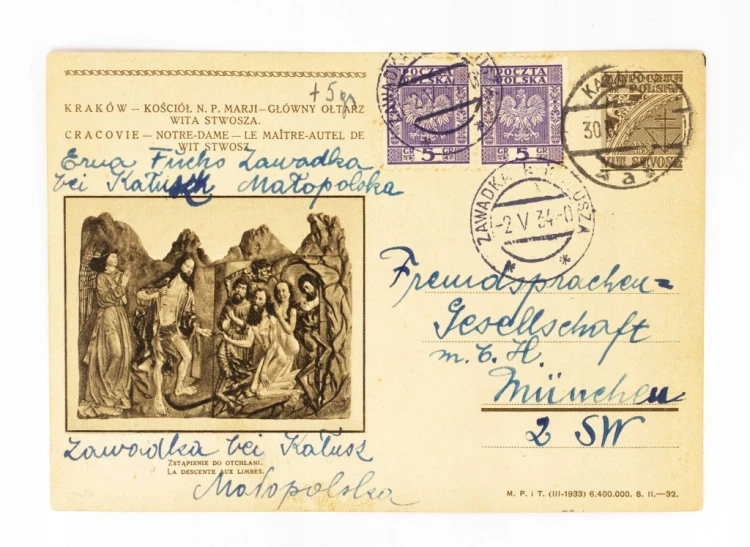 KRAKÓW — KOŚCIÓŁ N. P. MARJI—GŁÓWNY OŁTARZ
WITA STWOSZA.
CRACOVIE — NOTRE-DAME — LE MAÎTRE-AUTEL DE
WIT STWOSZ.
+ 5 gr
Erna Fuchs Zawadka
bei Kałusz Małopolska
POCZTA
POLSKA
5
GR GR
POCZTA
POLSKA
5
GR GR
POCZTA
POLSKA
WIT STWOSZ
30
a
ZAWADKA K. KAŁUSZA
-2 V 34-0
Fremdsprachen=
Gesellschaft
m. b. H.
München
2 SW
ZSTĄPIENIE DO OTCHŁANI.
LA DESCENTE AUX LIMBES.
Zawadka bei Kałusz
Małopolska
M. P. i T. (III-1933) 6.400.000. S. II.—32.